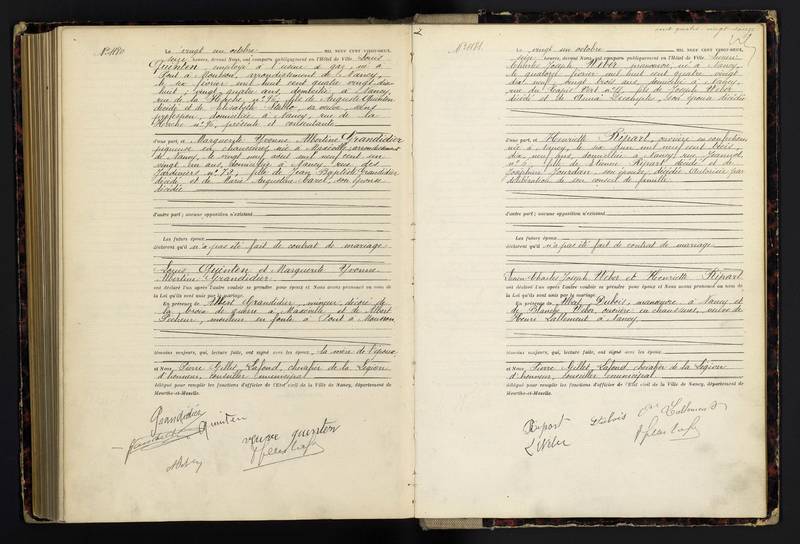 N° 1180
Le vingt un octobre MIL NEUF CENT VINGT-DEUX,
seize heures, devant Nous, ont comparu publiquement en l'Hôtel de Ville Louis
Quinten, employé à l'usine à gaz, né à
Pont à Mousson, arrondissement de Nancy,
le six février mil huit cent quatre vingt dix
huit, vingt quatre ans, domicilié à Nancy,
rue de la n° 96, fils de Auguste Quinten
décédé et de Elisabeth sa veuve, sans
profession, domiciliée à Nancy, rue de la
n° 96, présente et consentante
d'une part, et Marguerite Yvonne Albertine Grandidier
née à Maxéville arrondissement
de Nancy, le vingt neuf août mil neuf cent un
vingt un ans, domiciliée à Nancy rue des
Jardiniers n° 73, fille de Jean Baptiste Grandidier
décédé, et de Marie Augustine son épouse
décédée
d'autre part ; aucune opposition n'existant
Les futurs époux
déclarent qu'il n'a pas été fait de contrat de mariage
Louis Quinten et Marguerite Yvonne
Albertine Grandidier
ont déclaré l'un après l'autre vouloir se prendre pour époux et Nous avons prononcé au nom de
la Loi qu'ils sont unis par le mariage.
En présence de Albert Grandidier, mineur, décoré de
la croix de guerre à Maxéville et de Albert
mouleur en fonte à Pont à Mousson
témoins majeurs, qui, lecture faite, ont signé avec les époux, la mère de l'époux
et Nous, Pierre Gillet Lafond, chevalier de la Légion
d'honneur, conseiller municipal
délégué pour remplir les fonctions d'officier de l'Etat civil de la Ville de Nancy, département de
Meurthe-et-Moselle.
Grandidier
Quinten
veuve quinten
N° 1181
Le vingt un octobre MIL NEUF CENT VINGT-DEUX,
seize heures, devant Nous, ont comparu publiquement en l'Hôtel de Ville Lucien
Charles Joseph Weber, manœuvre, né à Nancy,
le quatorze février mil huit cent quatre vingt
dix neuf, vingt trois ans, domicilié à Nancy,
rue du n° 12, fils de Joseph Weber
décédé et de Anna son épouse décédée
d'une part, et Henriette Ripart, ouvrière en confection,
née à Nancy, le six mil neuf cent trois,
dix neuf ans, domiciliée à Nancy rue
n° 5, fille de Etienne Ripart décédé et de
Joséphine Jourdan, son épouse, décédée Autorisée par
délibération de son conseil de famille
d'autre part ; aucune opposition n'existant
Les futurs époux
déclarent qu'il n'a pas été fait de contrat de mariage
Lucien Charles Joseph Weber et Henriette Ripart
ont déclaré l'un après l'autre vouloir se prendre pour époux et Nous avons prononcé au nom de
la Loi qu'ils sont unis par le mariage.
En présence de Albert Dubois, manœuvre à Nancy et
de Blanche Weber, ouvrière en chaussures, veuve de
Henri Lallement à Nancy
témoins majeurs, qui, lecture faite, ont signé avec les époux
et Nous, Pierre Gillet Lafond, chevalier de la Légion
d'honneur, conseiller municipal
délégué pour remplir les fonctions d'officier de l'Etat civil de la Ville de Nancy, département de
Meurthe-et-Moselle.
Ripart
Dubois
Lallement
L Weber